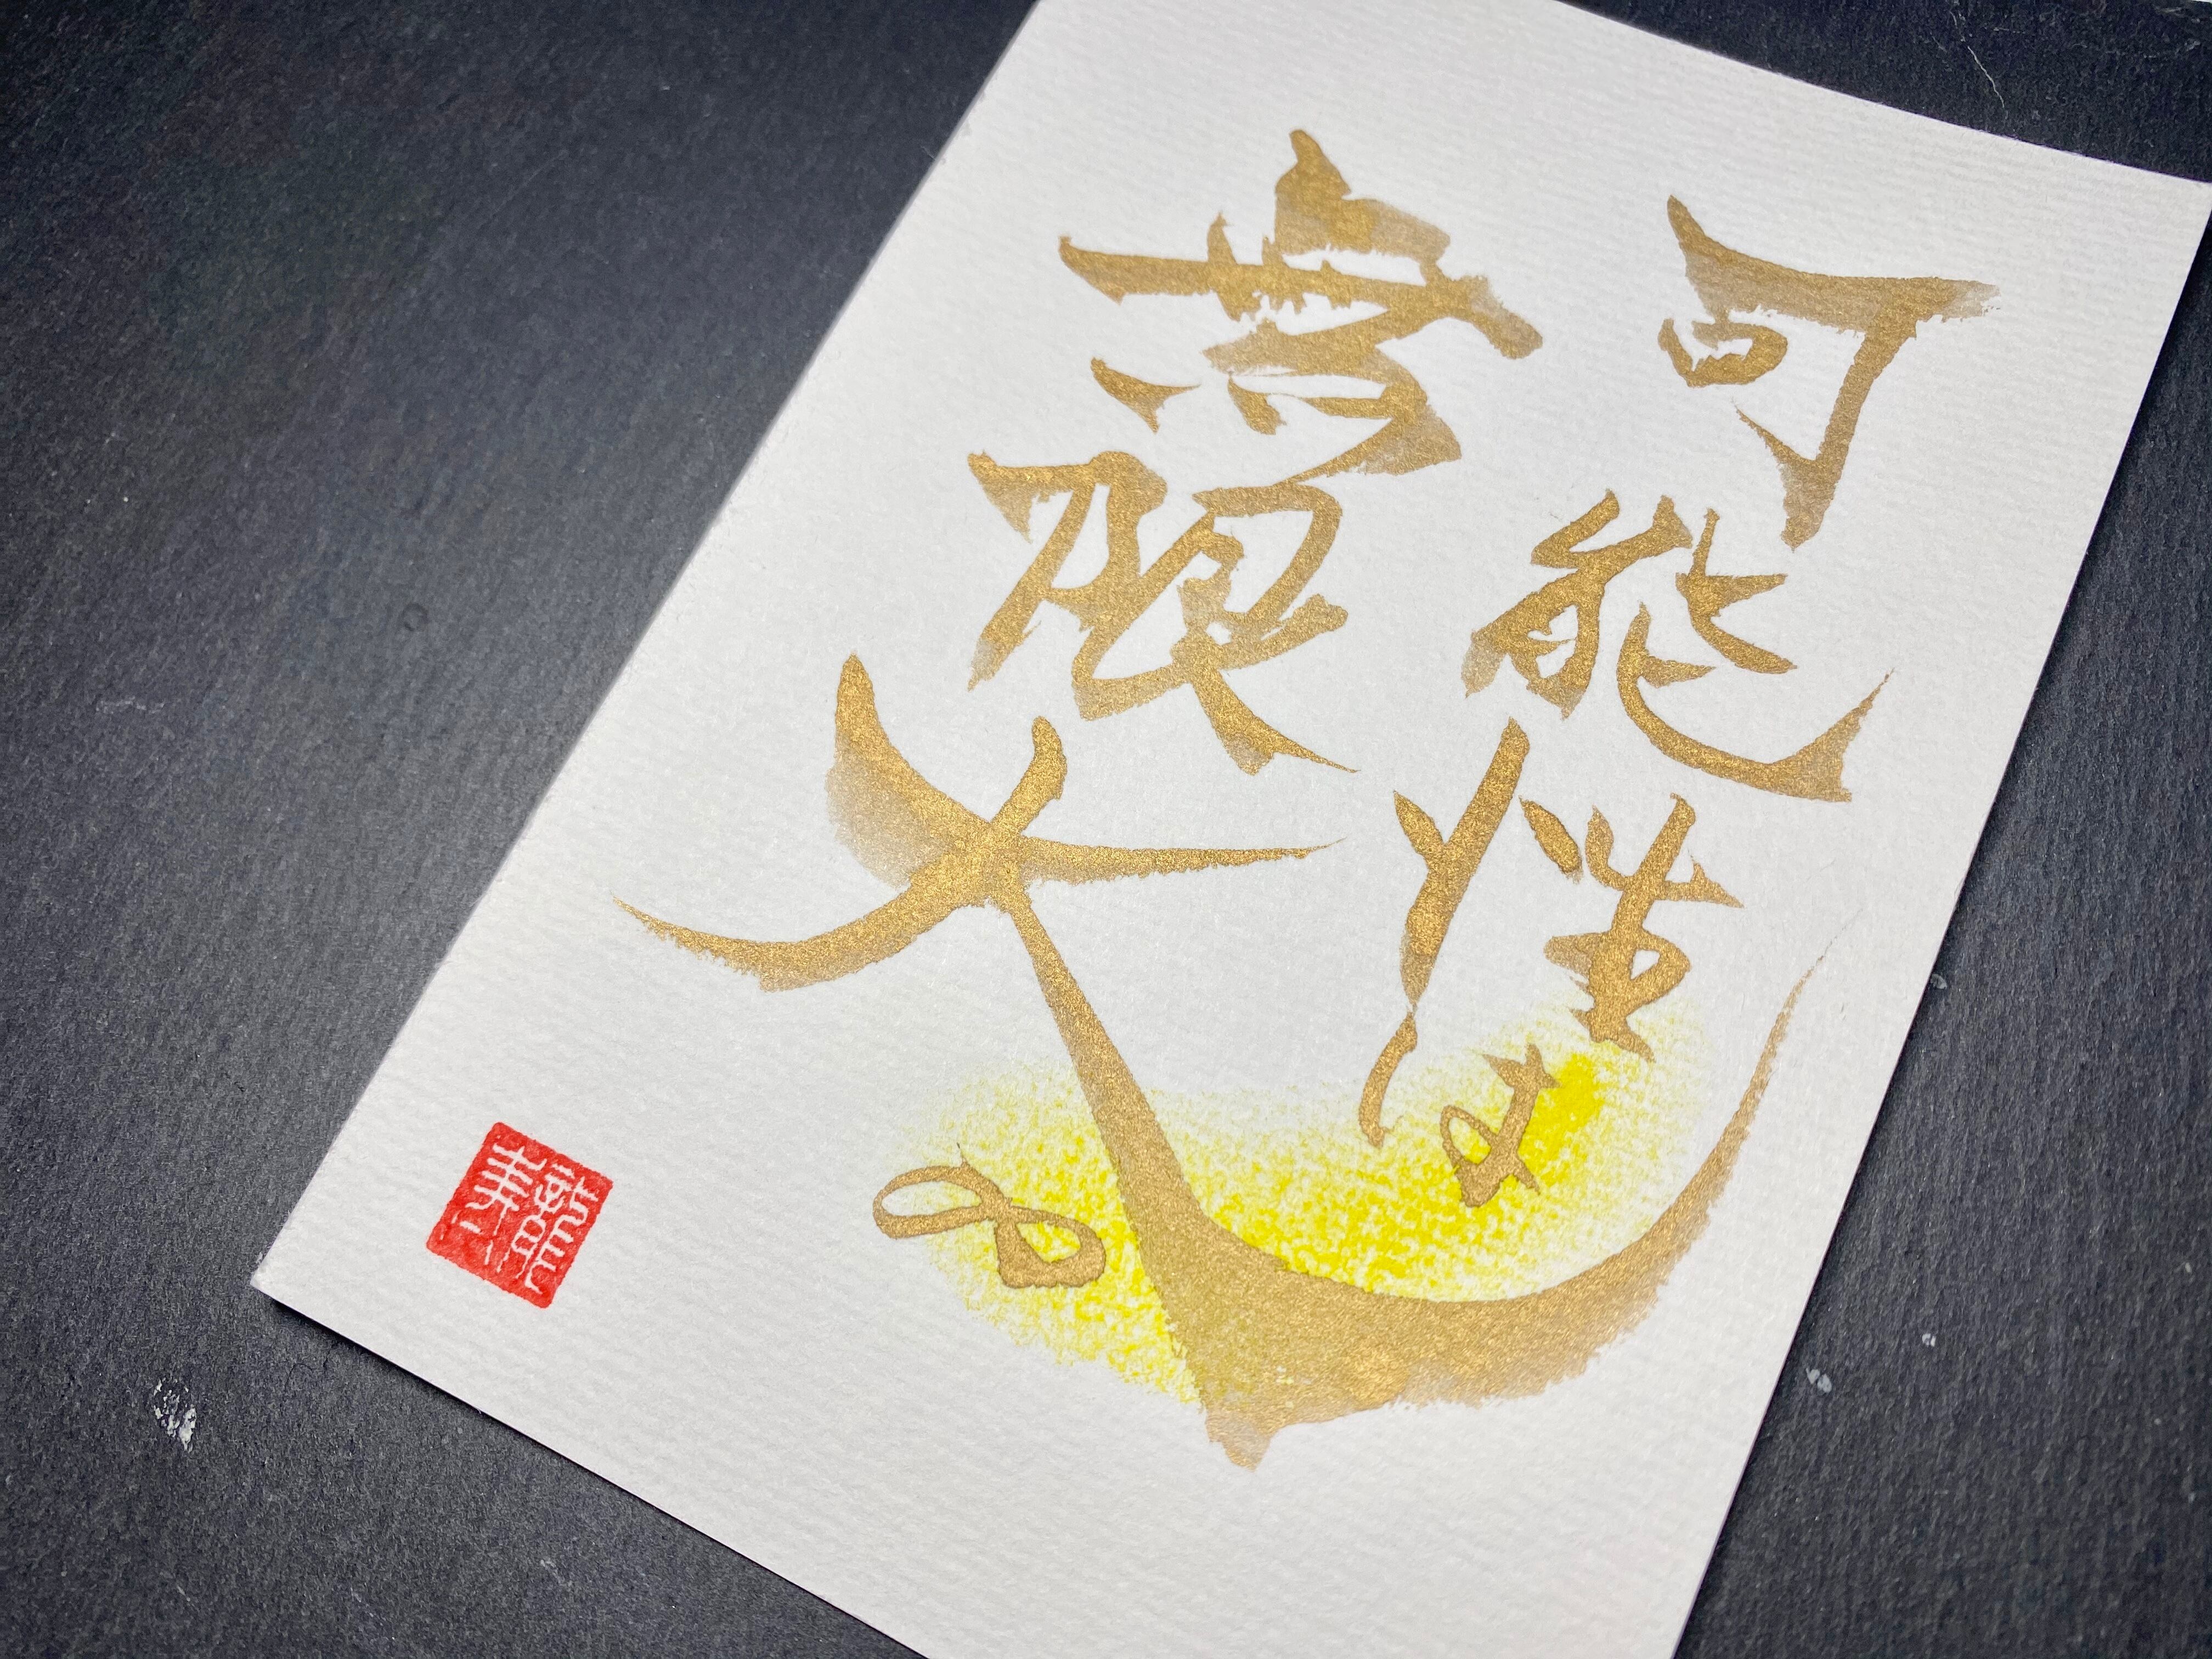 可能性は
無限大
∞